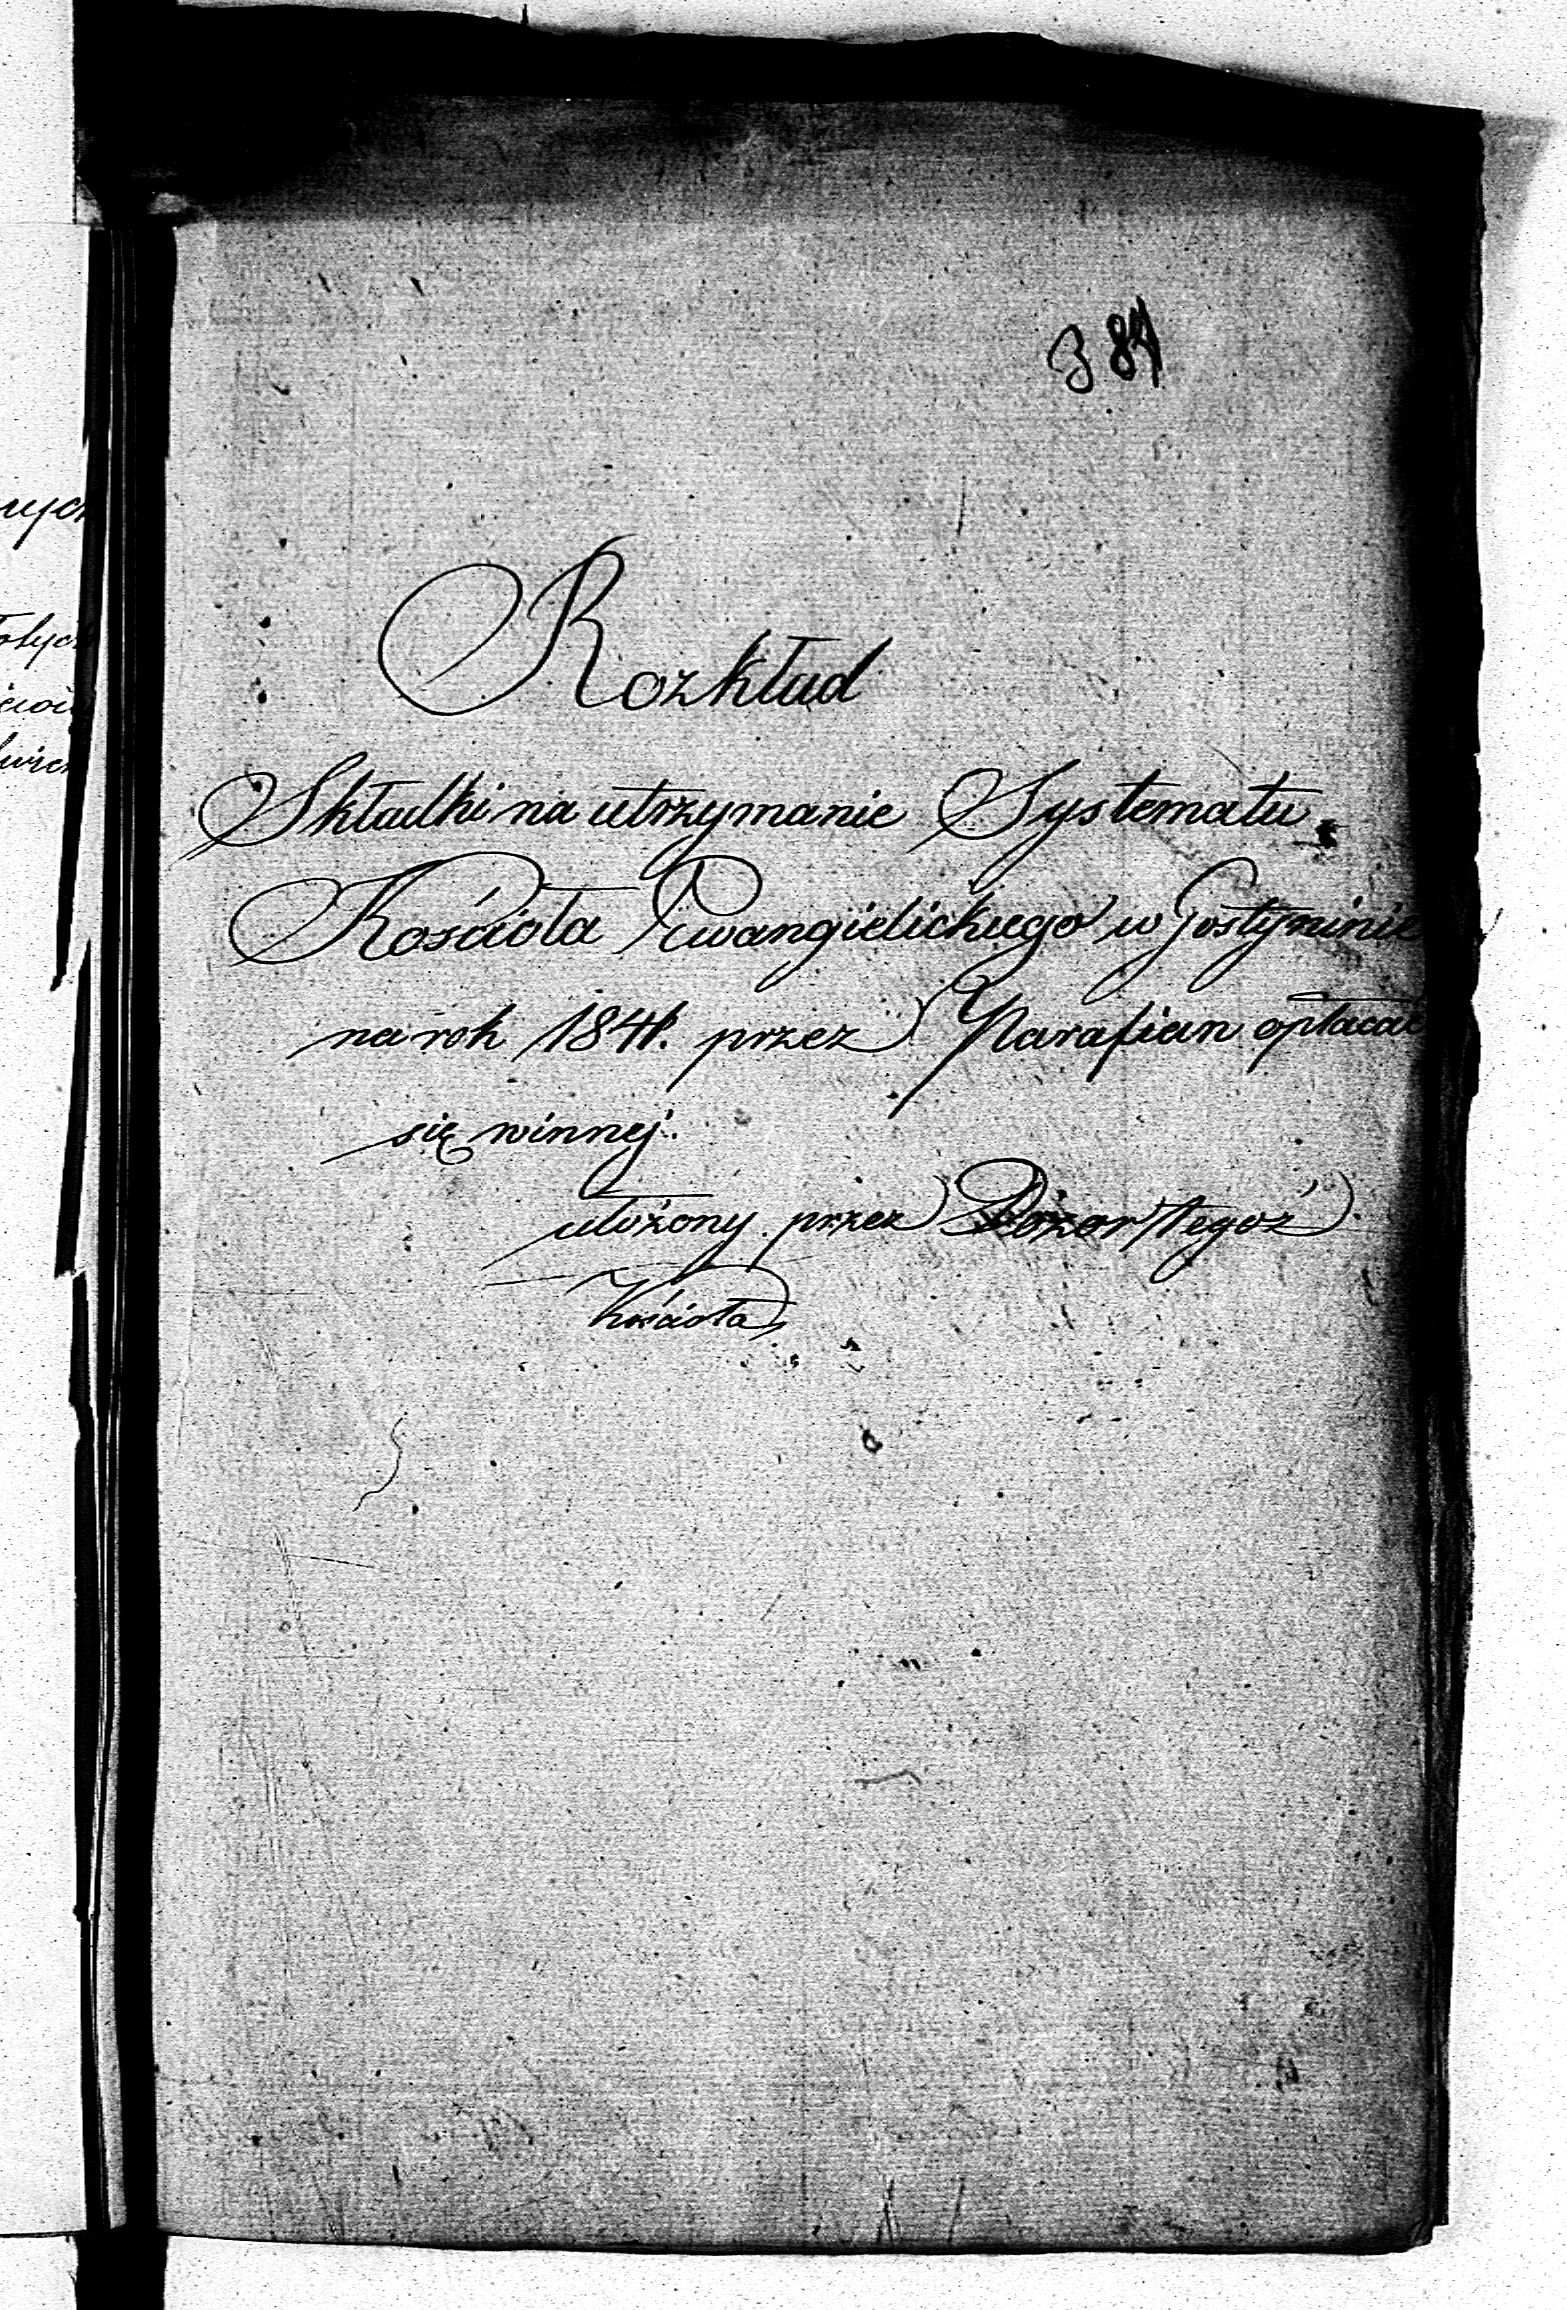 384
Rozkład
Składki na utrzymanie Systematu
Kościoła Ewangielickiego w Gostyninie
na rok 1841. przez Parafian opłacać
się winnej.
ułożony przez Dozor tegoż
Kościoła